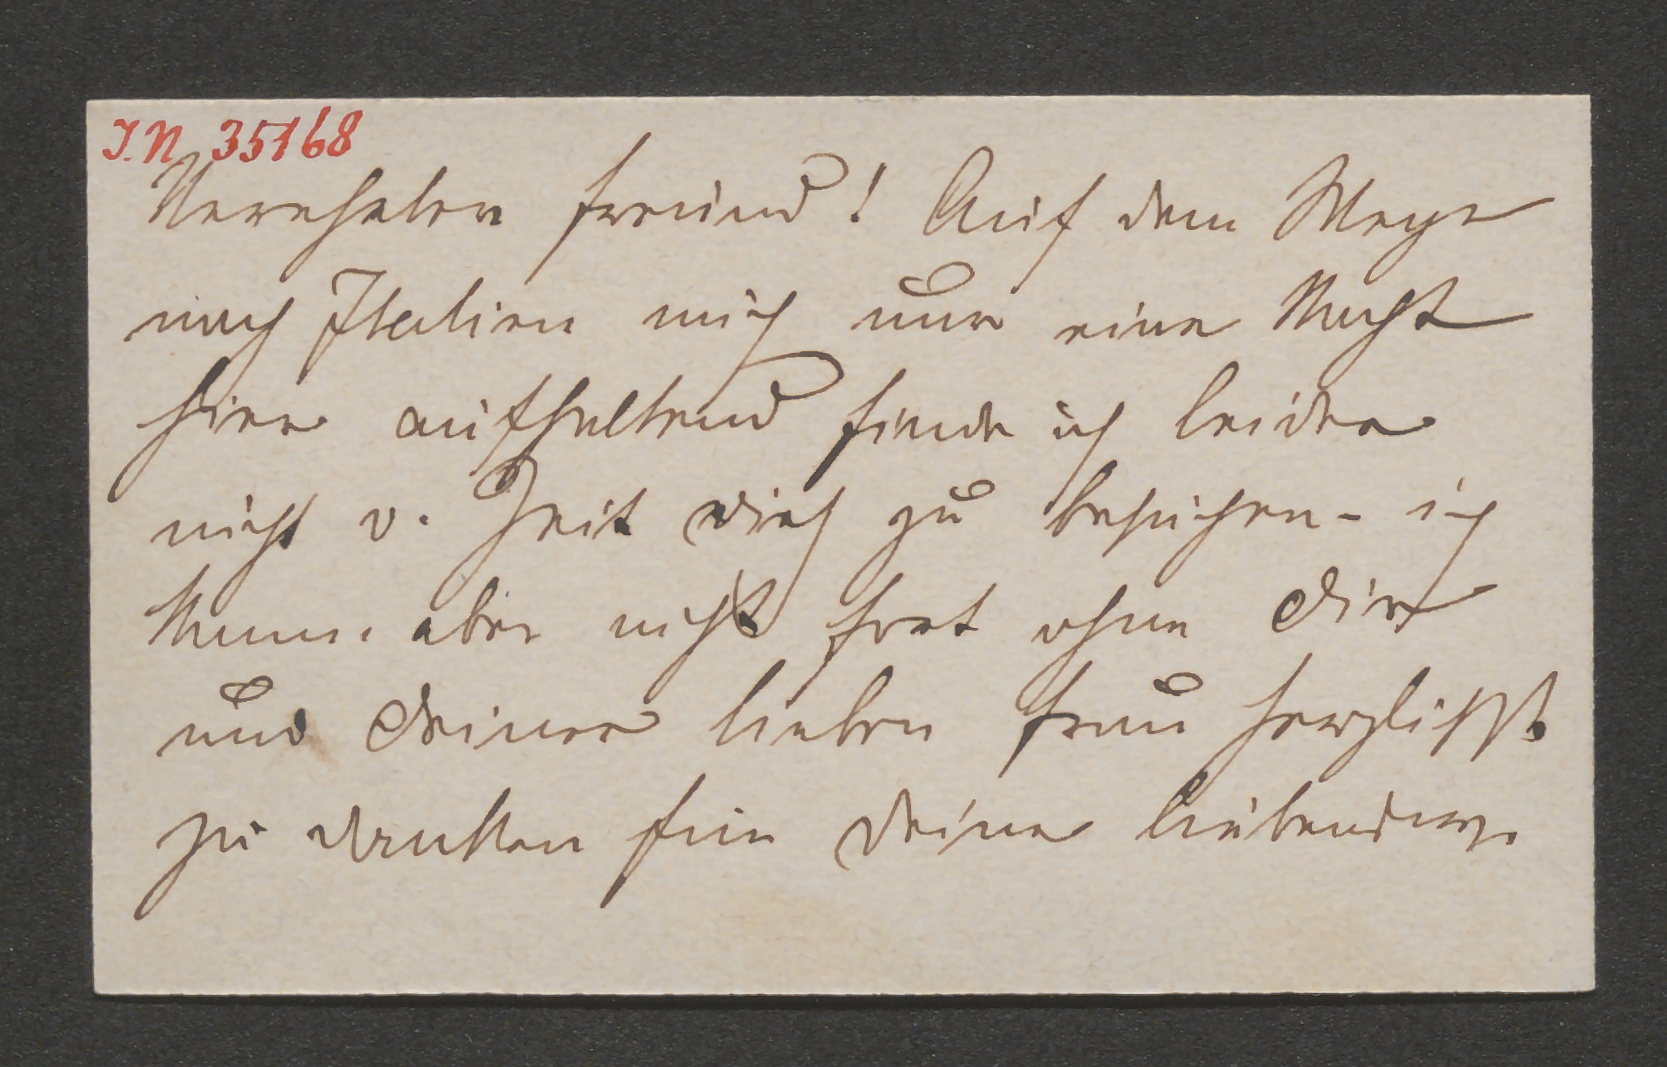 I.N. 35168
Verehrter Freund! Auf dem Wege
nach Italien mich nur eine Nacht
hier aufhaltend finde ich leider
nicht d. Zeit dich zu besuchen - ich
kann aber nicht fort ohne Dir
und Deiner lieben Frau herzlichst
zu danken für Deine liebensw.